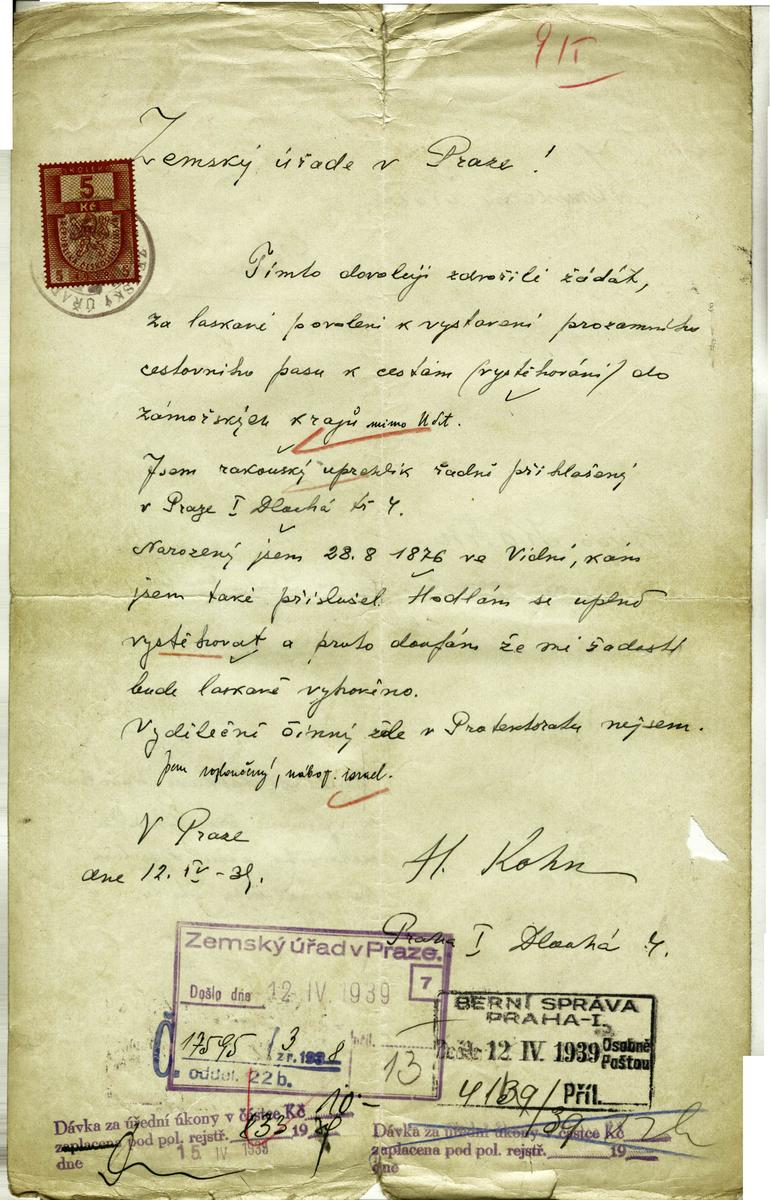 9 II
Zemský úřade v Praze!
KOLEK
5
Kč
ZEMSKÝ ÚŘAD
Tímto dovoluji zdvořile žádát,
za laskavé povolení k vystavení prozamního
cestovního pasu k cestám (vystěhování) do
zámořských krajů mimo
Jsem rakouský uprchlík řadně přihlášený
v Praze I Dlouhá tř 4.
Narozený jsem 28.8 1876 ve Vídni, kám
jsem také příslušel. Hodlám se uplně
vystěhovat a proto doufám že mé žadosti
bude laskavě vyhověno.
Vydělečně činný zde v Protektoratu nejsem.
Jsem rozloučený, nábož. israel.
V Praze
dne 12. IV - 39.
H. Kohn
Praha I Dlouhá 4.
Zemský úřad v Praze.
7
Došlo dne 12. IV. 1939
17595 / 3 z r. 1938
příl.
13
odděl. 22 b.
BERNÍ SPRÁVA
PRAHA-I.
Došlo 12. IV. 1939 Osobně
Poštou
4139/ Příl.
Dávka za úřední úkony v částce Kč 10.-
zaplacena pod pol. rejstř. 833 19 39
dne 15 IV 1939
Dávka za úřední úkony v částce Kč
zaplacena pod pol. rejstř. 19
dne